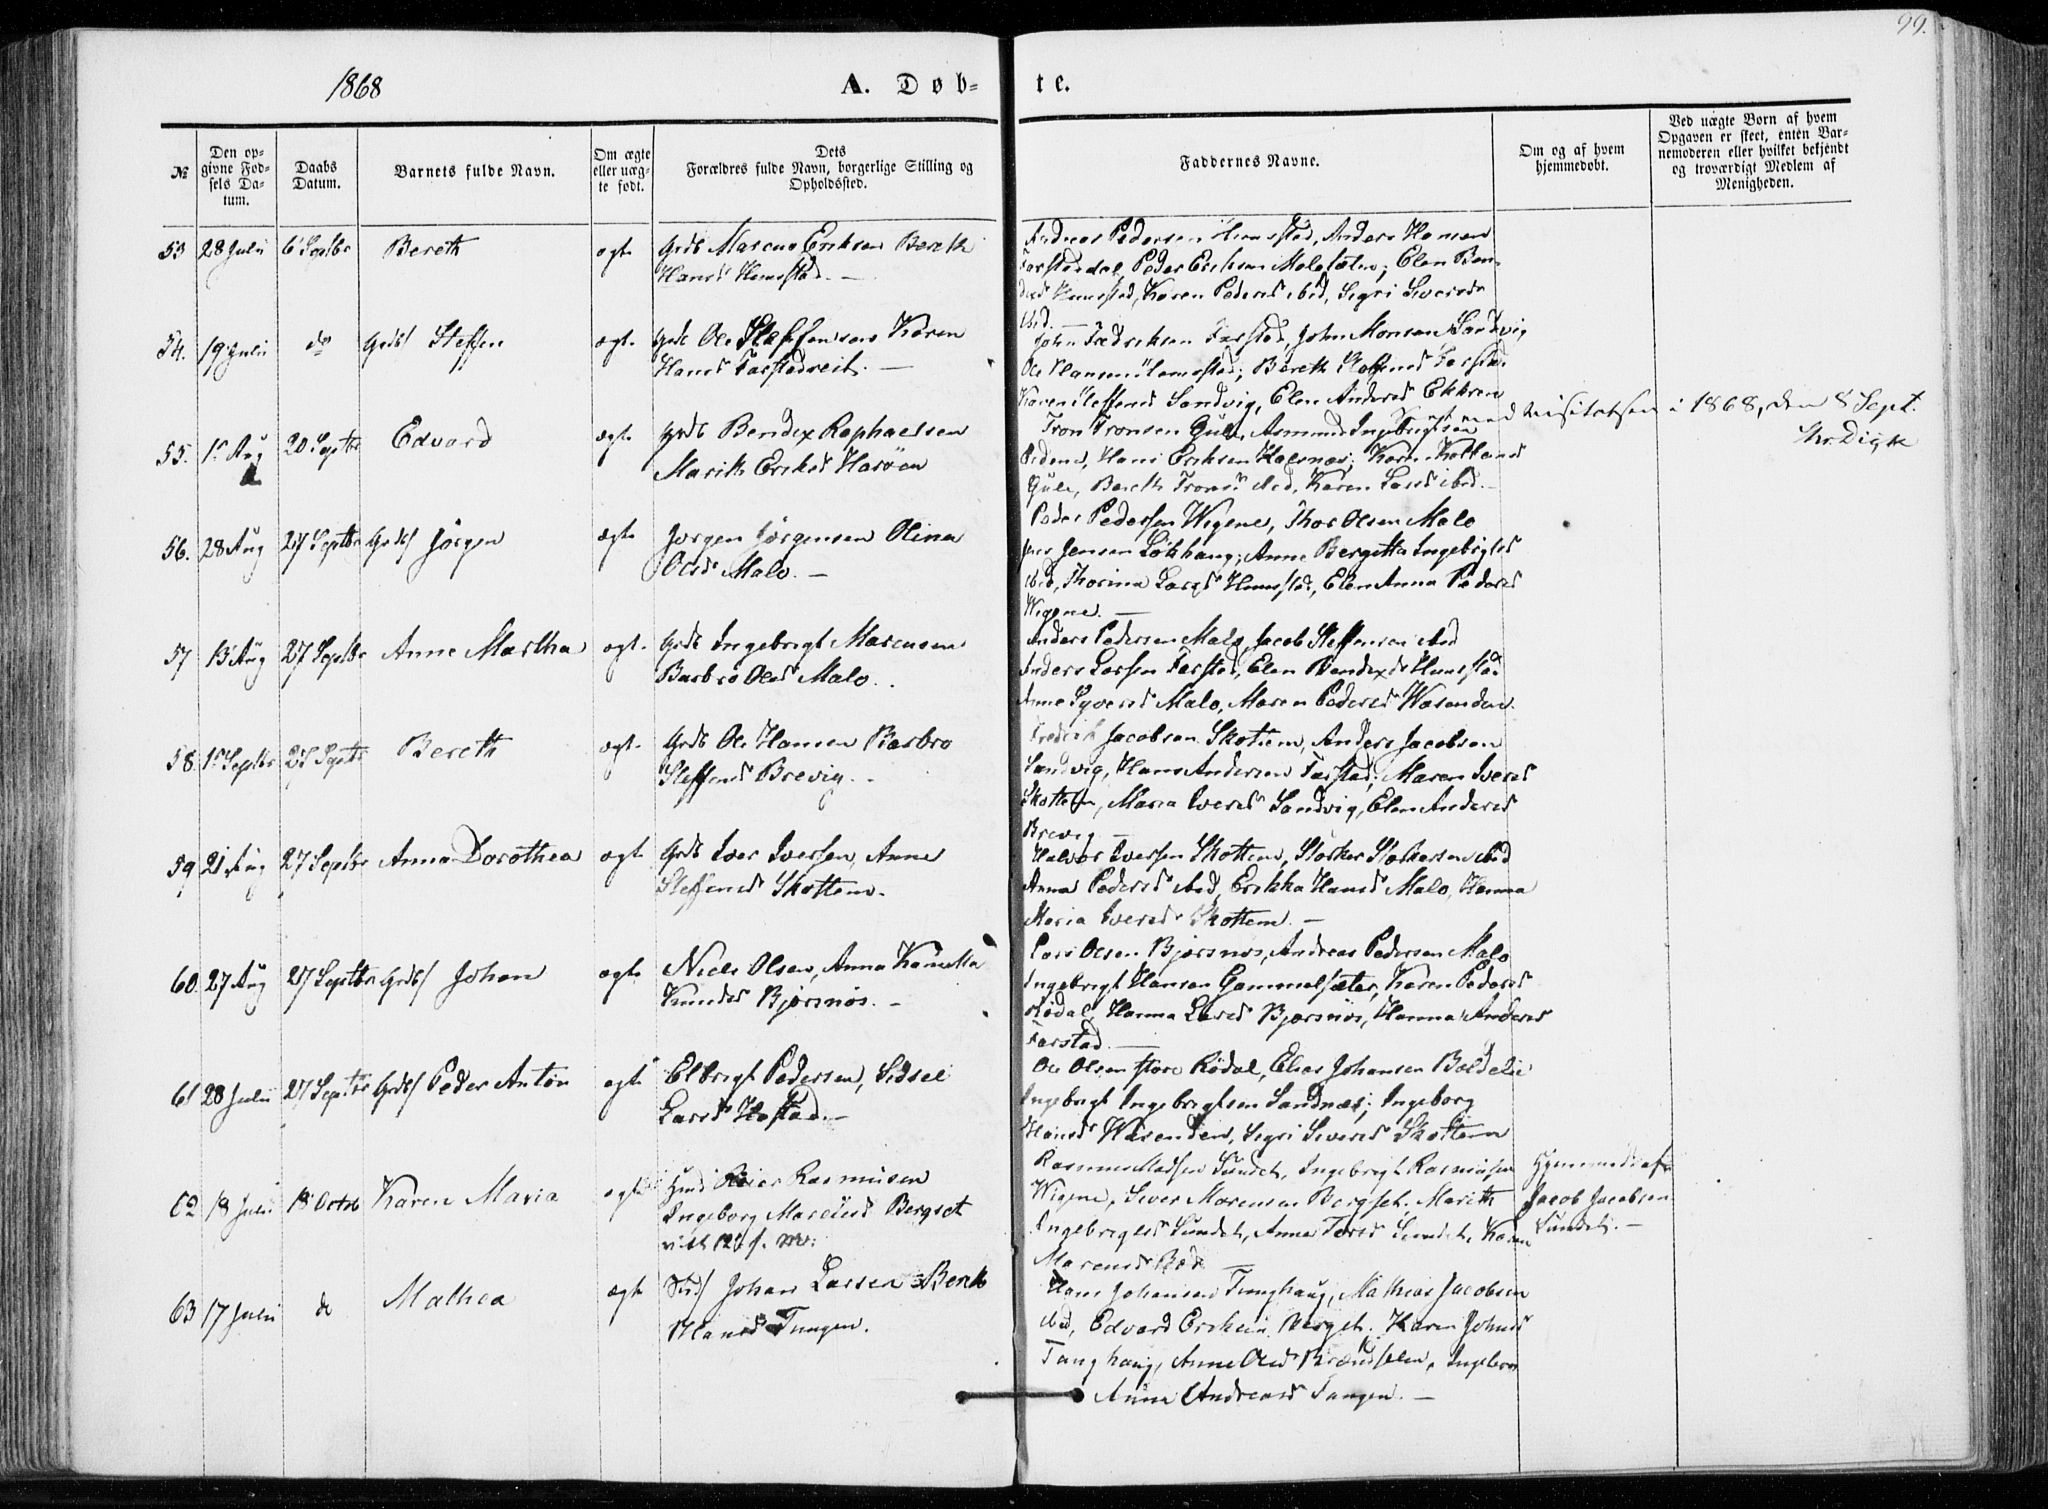 99.
1868
A. Døb-
te.
№
Den op-
givne Fød-
sels Da-
tum.
Daabs
Datum.
Barnets fulde Navn.
Om ægte
eller uæg-
te født.
Dets
Forældres fulde Navn, borgerlige Stilling og
Opholdssted.
Faddernes Navne.
Om og af hvem
hjemmedøbt.
Ved uægte Børn af hvem
Opgaven er skeet, enten Bar-
nemoderen eller hvilket bekjendt
og troværdigt Medlem af
Menigheden.
53 28 Juli 6 Septbr Bereth ægte Grdb Marcus Eriksen Bereth
Hansd Hemstad. —
Andreas Pedersen Hemstad, Anders Hansen
Farstaddal, Peder Eriksen Male; Elen Ben-
dixd Hemstad, Karen Pedersd ibid, Sigri Siversd
ibid. —
54. 19 Juli do Grdb Steffen ægte Ole Steffensen Karen
Hansd Farstad. —
John Fredriksen Farstad, John Monsen Sandvig
Ole Hansen Hemstad; Bereth Farstad
Karen Steffensd Sandvig, Elen Andersd Ekkren
visitatsen i 1868, den 8 Sept.
55. 1 Aug 20 Septbr Edvard ægte Grdb Bendix Raphaelsen
Marith Eriksd Harøen
Tron Tronsen Gule, Asmund Ingebrigtsen
Hans Eriksen; Karen
Gule, Bereth Tronsd ibid, Karen Larsd ibid. —
56. 28 Aug 27 Septbr Jørgen ægte Jørgen Jørgensen Olina
Olsd Malo. —
Peder Pedersen Wigene, Thor Olsen Malo
Jens Jensen Løkhaug; Anne Bergitta Ingebrigtsd
ibid, Thorina Larsd Hemstad, Elen Anna Pedersd
Wigene. —
57 13 Aug 27 Septbr Anne Martha ægt. Grdb Ingebrigt Marcusen
Barbro Olsd Malo.
Anders Pedersen Malo, Jacob Steffensen ibid
Anders Larsen Farstad, Elen Bendixd Hemstad
Anne Syversd Malo, Maren Pedersd Wasenden.
58. 1 Septbr 27 Septbr Bereth ægt. Grdb Ole Hansen Barbro
Steffensd Brevig.
Fredrik Jacobsen Skottem, Anders Jacobsen
Sandvig, Hans Andersen Farstad; Maren Iversd
Skottem, Maria Iversd Sandvig, Elen Andersd
Brevig —
59 21 Aug 27 Septbr Anna Dorothea ægte Grdb Iver Iversen, Anne
Steffensd Skottem.
Halvor Iversen Skottem, Størker Størkersen ibid
Anna Pedersd ibid, Erikka Hansd Malo, Hanna
Maria Iversd Skottem. —
60. 27 Aug 27 Septbr Johan ægte Niels Olsen, Anna
Knudsd Bjørsnøs. —
Lars Olsen Bjørsnøs, Andreas Pedersen Malo
Ingebrigt Hansen Gammelsæter, Karen Pedersd
Rødal, Hanna Larsd Bjørsnøs, Hanna Andersd
Farstad. —
61 28 Juli 27 Septbr Peder Anton ægte Elbrigt Pedersen, Sidsel
Larsd Hostad. —
Ole Olsen store Rødal, Elias Johansen
Ingebrigt Ingebrigtsen Sandnæs; Ingeborg
Hansd Wasenden, Sigri Siversd Skottem
62 18 Juli 18 Octob Karen Maria ægte Reier Rasmusen
Ingeborg Marcusd Bergset
Rasmus Madsen Sundet, Ingebrigt Rasmusen
Wigene, Siver Marcusen Bergset, Marith
Ingebrigtsd Sundet, Anne Sundet, Karen
Marcusd —
Hjemmedøbt af
Jacob Jacobsen
Sundet. —
63 17 Juli do Mathea ægte Johan Larsen Bereth
Hansd Tangen.
Hans Johansen Tanghaug, Mathias Jacobsen
ibid, Edvard Eriksen; Karen Johnsd
Tanghaug, Anne Olsd
Anne Andreasd Tangen. —